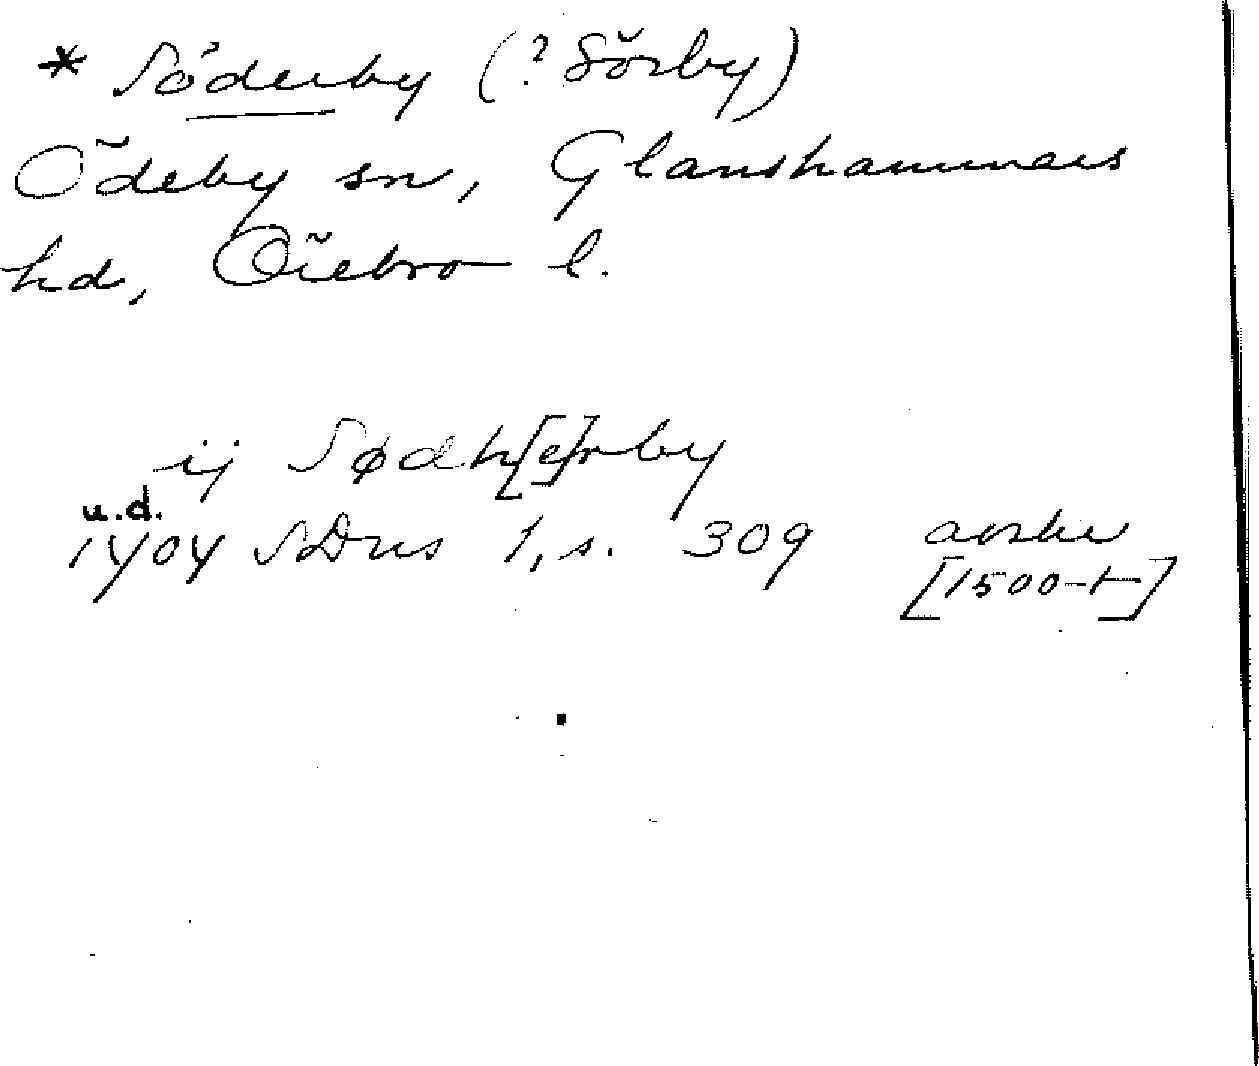 * Söderby (? Sörby)
Ödeby sn, Glanshammars
hd, Örebro l.
ij Sødh[e]rby
u.d.
1404 SDns 1, s. 309 avskr
[1500-t]